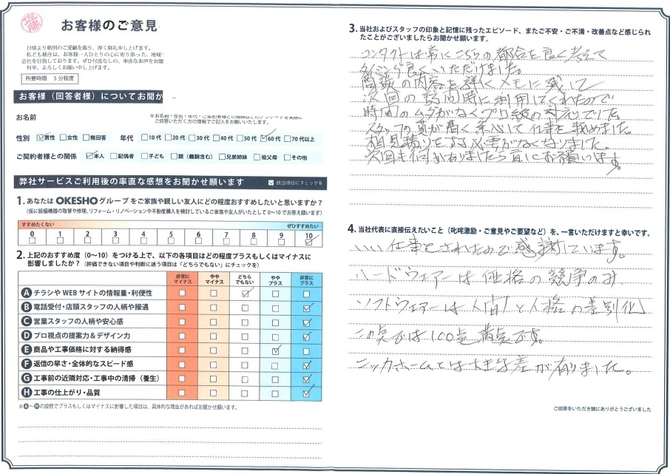 お客様のご意見
日頃より格別のご愛顧を賜り、厚く御礼申し上げます。
所要時間 5分程度
お客様(回答者様)についてお聞か
お名前
性別 男性 女性 無回答 年代 10代 20代 30代 40代 50代 60代 70代以上
ご契約者様との関係 本人 配偶者 子ども 親(義親含む) 兄弟姉妹 祖父母 その他
弊社サービスご利用後の率直な感想をお聞かせ願います 該当項目にチェックを
1. あなたは OKESHO グループ をご家族や親しい友人にどの程度おすすめしたいと思いますか?
(仮に設備機器の取替や修理、リフォーム・リノベーションや不動産購入を検討しているご家族や友人がいたとして0〜10でお答え願います)
すすめたくない ぜひすすめたい
0 1 2 3 4 5 6 7 8 9 10
2. 上記のおすすめ度(0〜10)をつける上で、以下の各項目はどの程度プラスもしくはマイナスに
影響しましたか?(評価できない項目や判断に迷う項目は「どちらでもない」にチェック)
非常にマイナス ややマイナス どちらでもない ややプラス 非常にプラス
A チラシやWEBサイトの情報量・利便性
B 電話受付・店頭スタッフの人柄や接遇
C 営業スタッフの人柄や安心感
D プロ視点の提案力&デザイン力
E 商品や工事価格に対する納得感
F 返信の早さ・全体的なスピード感
G 工事前の近隣対応・工事中の清掃(養生)
H 工事の仕上がり・品質
3. 当社およびスタッフの印象と記憶に残ったエピソード、またご不安・ご不満・改善点など感じられ
たことがございましたらお聞かせ願います。
コンタクトは常にこちらの都合を良く考えて
商談の内容を詳くメモに残して
次回の訪問時に利用してくれたので
時間のムダがなくプロ級の対応でした。
スタッフの質が高く安心して仕事を頼めました。
相見積りをとる必要がなくなりました。
次回も何かありましたら宜しくお願いします。
4. 当社代表に直接伝えたいこと(叱咤激励・ご意見やご要望など)を、一言いただけますと幸いです。
いい仕事をされたので感謝しています。
ハードウェアーは価格の競争のみ
ソフトウェアーは人間と人格の差別化
この点では100点満点です。
ニッカホームとは大きな差が有りました。
ご回答をいただき誠にありがとうございました